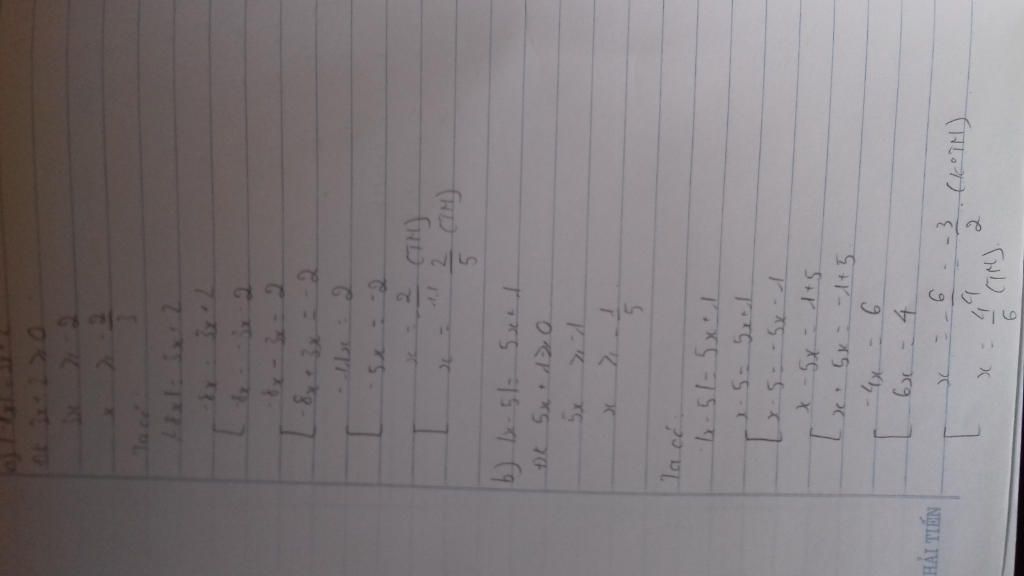 a) |-8x| = 3x + 2
ĐK 3x + 2 ≥ 0
3x ≥ -2
x ≥ -2/3
Ta có:
|-8x| = 3x + 2
[ -8x = 3x + 2
-8x = -3x - 2
[ -8x - 3x = 2
-8x + 3x = -2
[ -11x = 2
-5x = -2
[ x = -2/11 (TM)
x = 2/5 (TM)
b) |x - 5| = 5x + 1
ĐK 5x + 1 ≥ 0
5x ≥ -1
x ≥ -1/5
Ta có:
|x - 5| = 5x + 1
[ x - 5 = 5x + 1
x - 5 = -5x - 1
[ x - 5x = 1 + 5
x + 5x = -1 + 5
[ -4x = 6
6x = 4
[ x = -6/4 = -3/2 (KoTM)
x = 4/6 (TM).
HẢI TIẾN